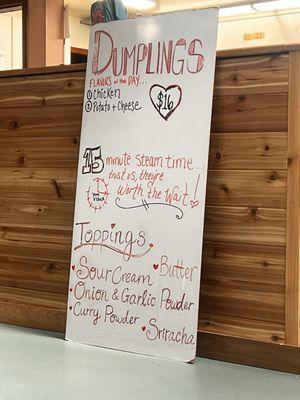 DUMPLINGS
FLAVORS of the DAY...
Chicken
Potato + Cheese
$16
15 minute Steam time...
trust us, they're
Worth the Wait!
Toppings
Sour Cream
Butter
Onion & Garlic Powder
Curry Powder
Sriracha